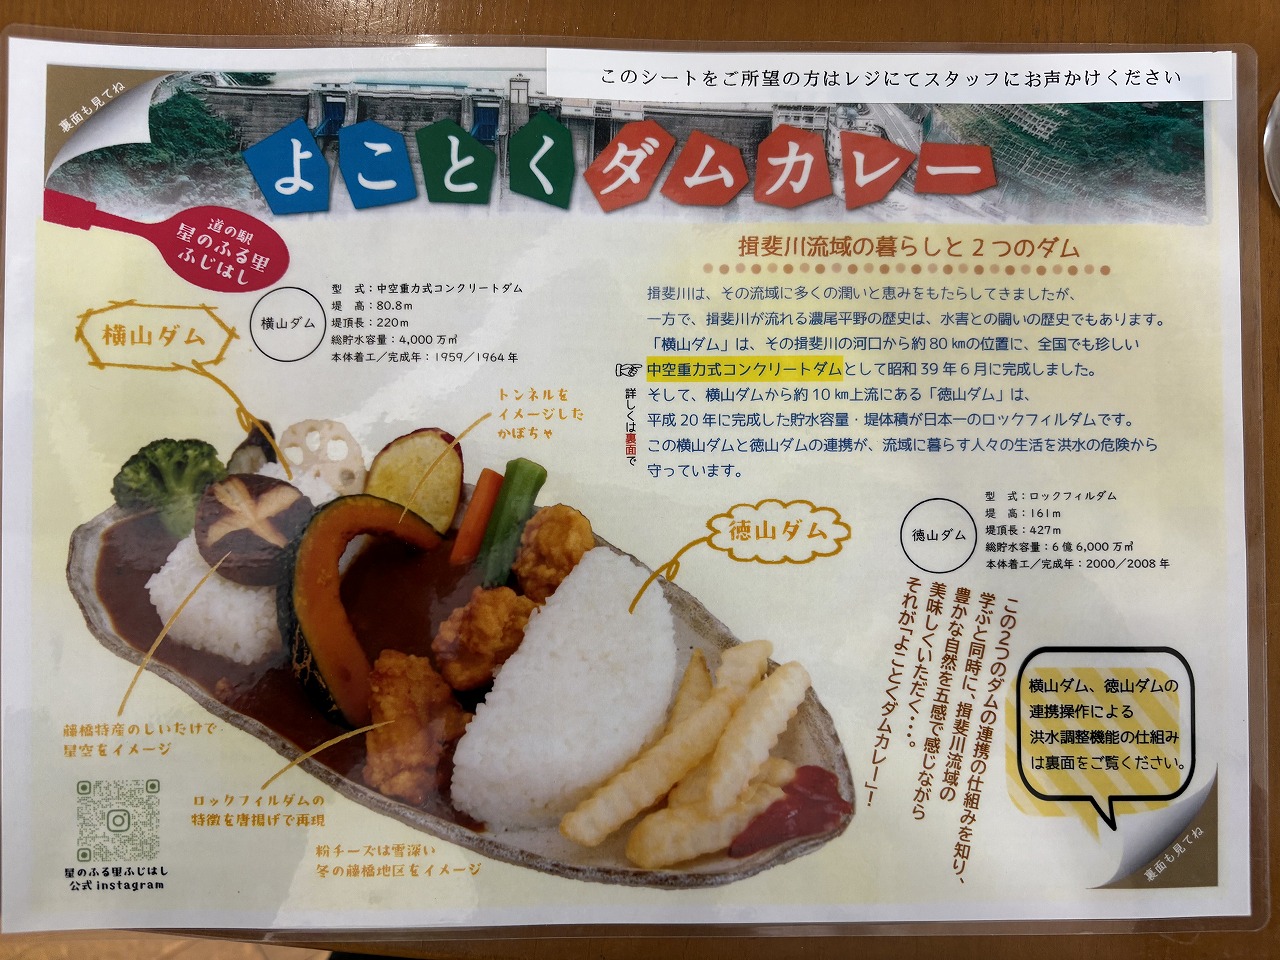 このシートをご所望の方はレジにてスタッフにお声かけください
裏面も見てね
よことくダムカレー
道の駅
星のふる里
ふじはし
揖斐川流域の暮らしと2つのダム
揖斐川は、その流域に多くの潤いと恵みをもたらしてきましたが、
一方で、揖斐川が流れる濃尾平野の歴史は、水害との闘いの歴史でもあります。
「横山ダム」は、その揖斐川の河口から約80㎞の位置に、全国でも珍しい
中空重力式コンクリートダムとして昭和39年6月に完成しました。
そして、横山ダムから約10㎞上流にある「徳山ダム」は、
平成20年に完成した貯水容量・堤体積が日本一のロックフィルダムです。
この横山ダムと徳山ダムの連携が、流域に暮らす人々の生活を洪水の危険から
守っています。
詳しくは裏面で
横山ダム
横山ダム
型　式：中空重力式コンクリートダム
堤　高：80.8m
堤頂長：220m
総貯水容量：4,000万㎥
本体着工／完成年：1959／1964年
トンネルを
イメージした
かぼちゃ
徳山ダム
徳山ダム
型　式：ロックフィルダム
堤　高：161m
堤頂長：427m
総貯水容量：6億6,000万㎥
本体着工／完成年：2000／2008年
この2つのダムの連携の仕組みを知り、
学ぶと同時に、揖斐川流域の
豊かな自然を五感で感じながら
美味しくいただく・・・。
それが「よことくダムカレー」！
横山ダム、徳山ダムの
連携操作による
洪水調整機能の仕組み
は裏面をご覧ください。
藤橋特産のしいたけで
星空をイメージ
ロックフィルダムの
特徴を唐揚げで再現
粉チーズは雪深い
冬の藤橋地区をイメージ
星のふる里ふじはし
公式instagram
裏面も見てね